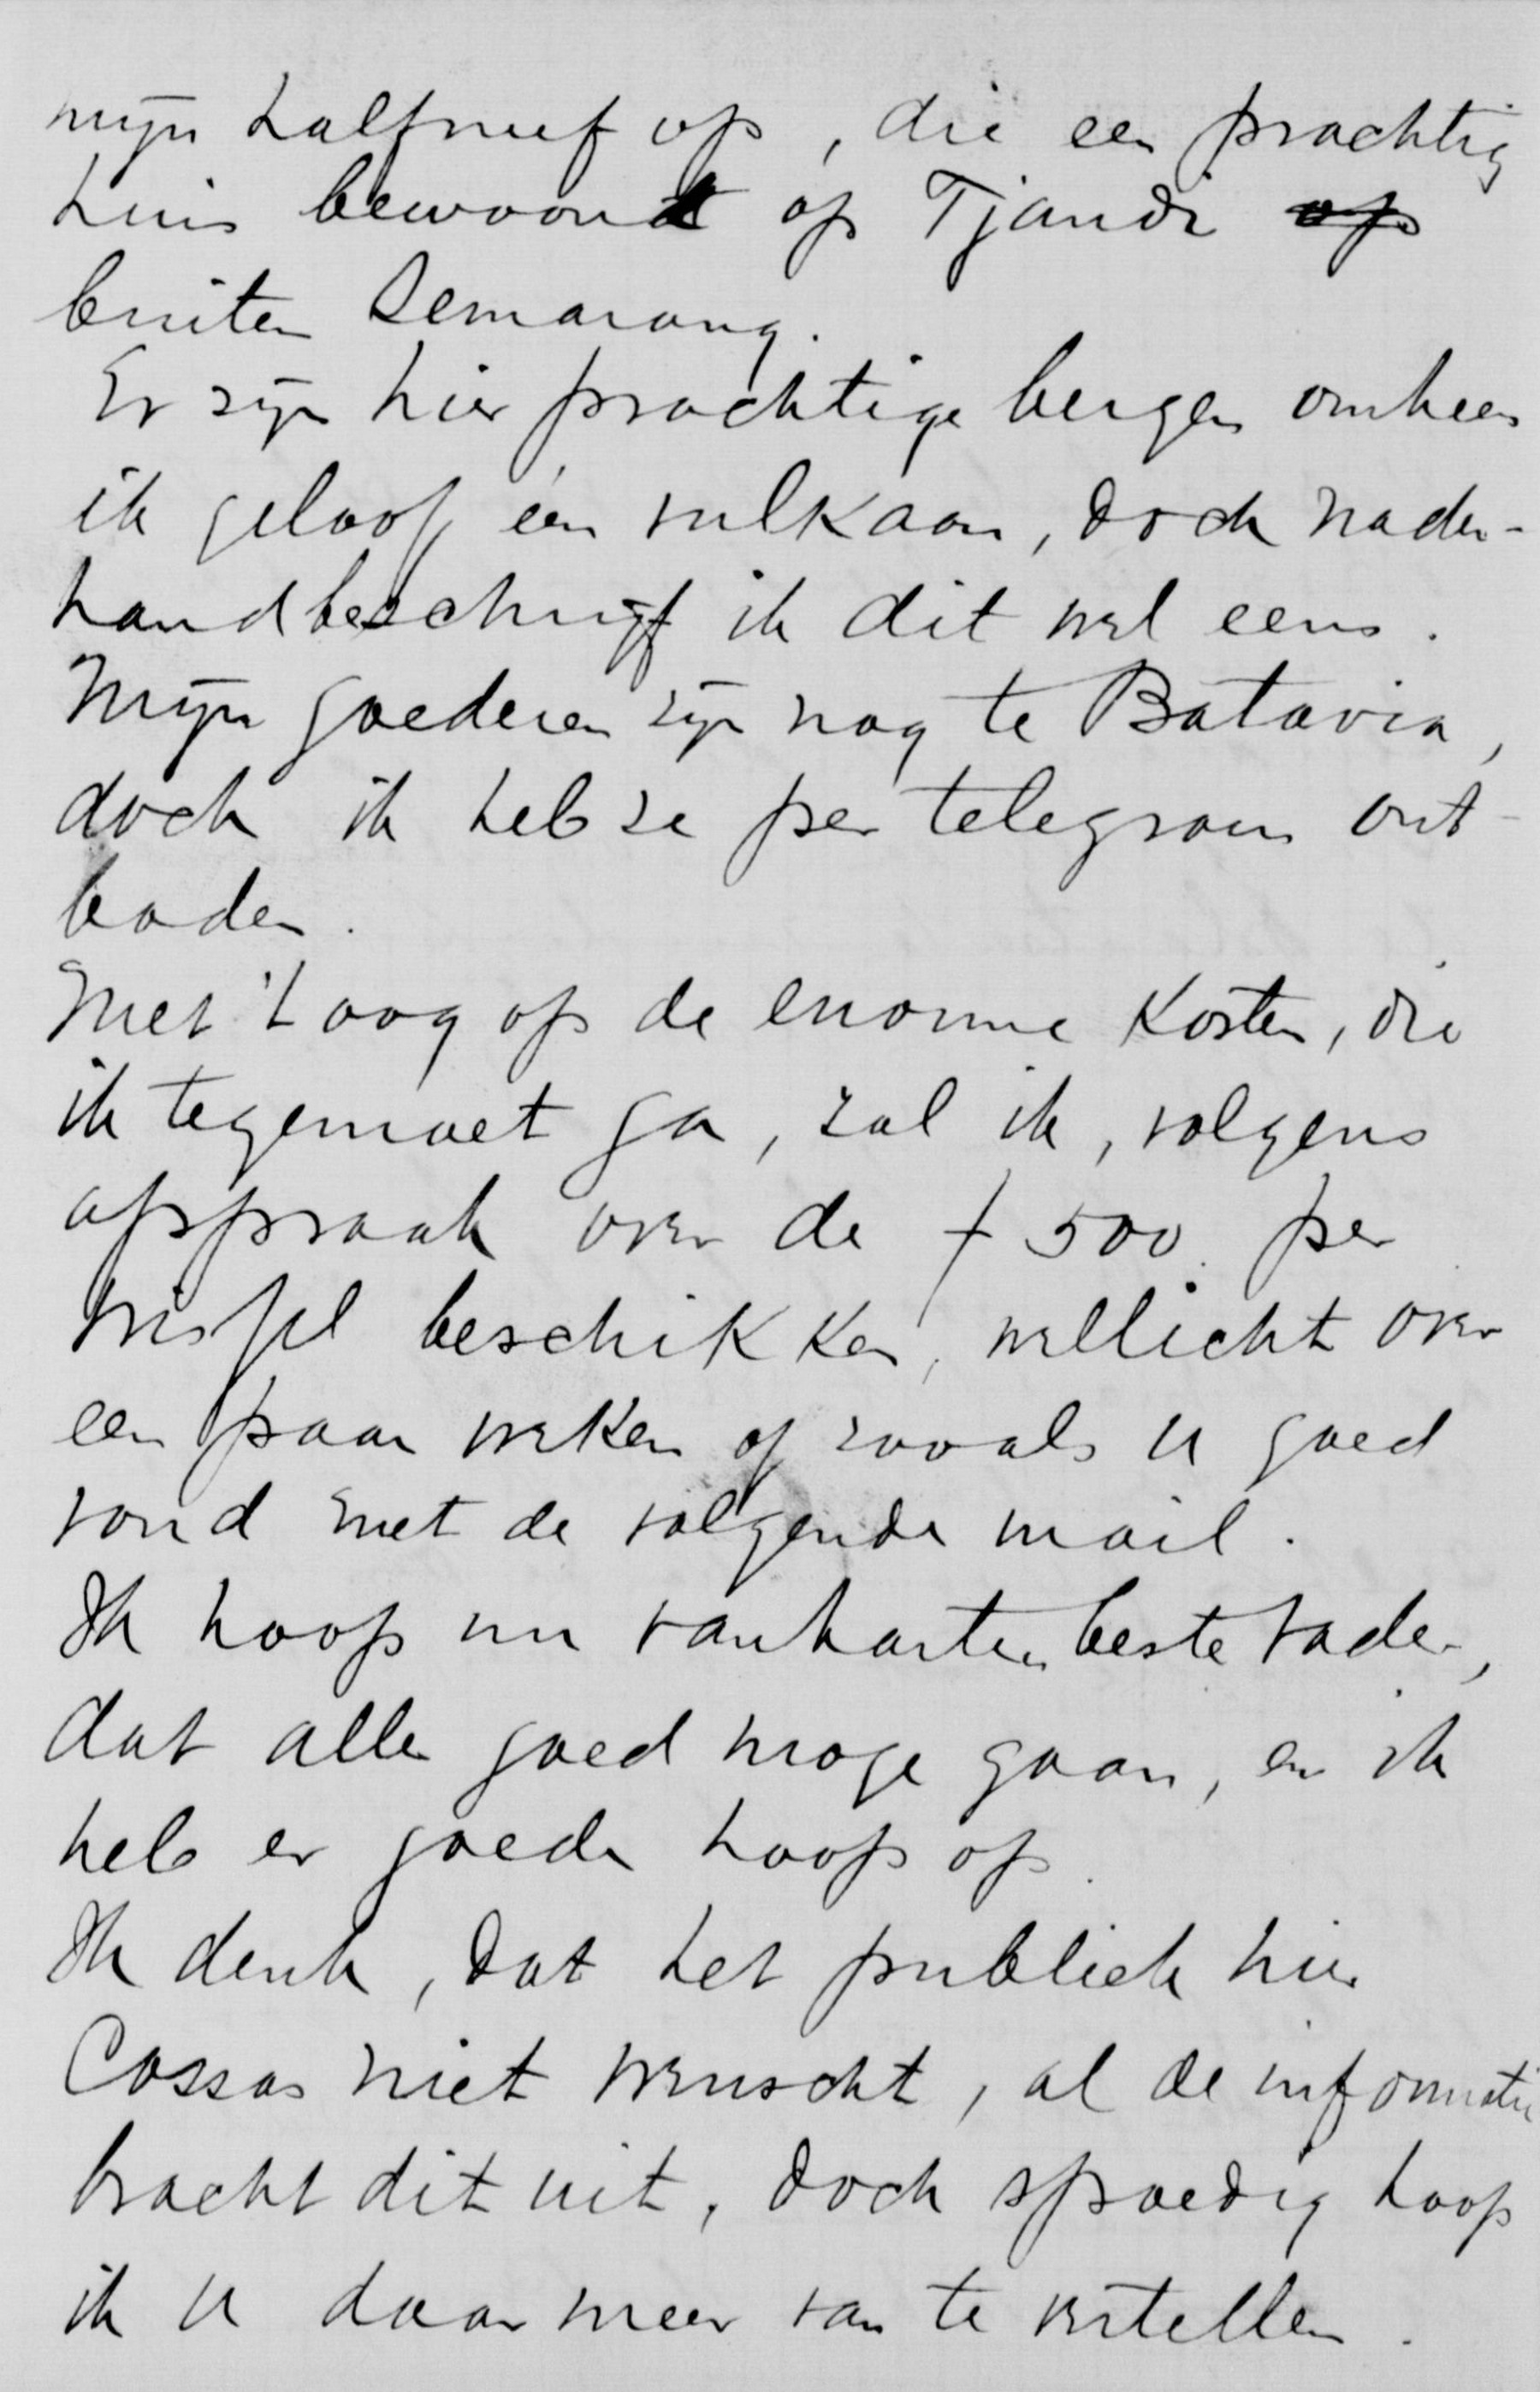 mijn halfneef op, die een prachtig
huis bewoont op Tjandi op
buiten Semarang.
Er zijn hier prachtige bergen omheen
ik geloof één vulkaan, doch nader-
hand beschrijf ik dit wel eens.
Mijn goederen zijn nog te Batavia,
doch ik heb ze per telegram ont-
boden.
Met 't oog op de enorme kosten, die
ik tegemoet ga, zal ik, volgens
afspraak over de f 500. per
wissel beschikken, wellicht over
een paar weken of zooals u goed
vond met de volgende mail.
Ik hoop nu van harte, beste vader,
dat alles goed moge gaan, en ik
heb er goede hoop op.
Ik denk, dat het publiek hier
Cossas niet wenscht, al de informatie
bracht dit uit, doch spoedig hoop
ik u daar meer van te vertellen.